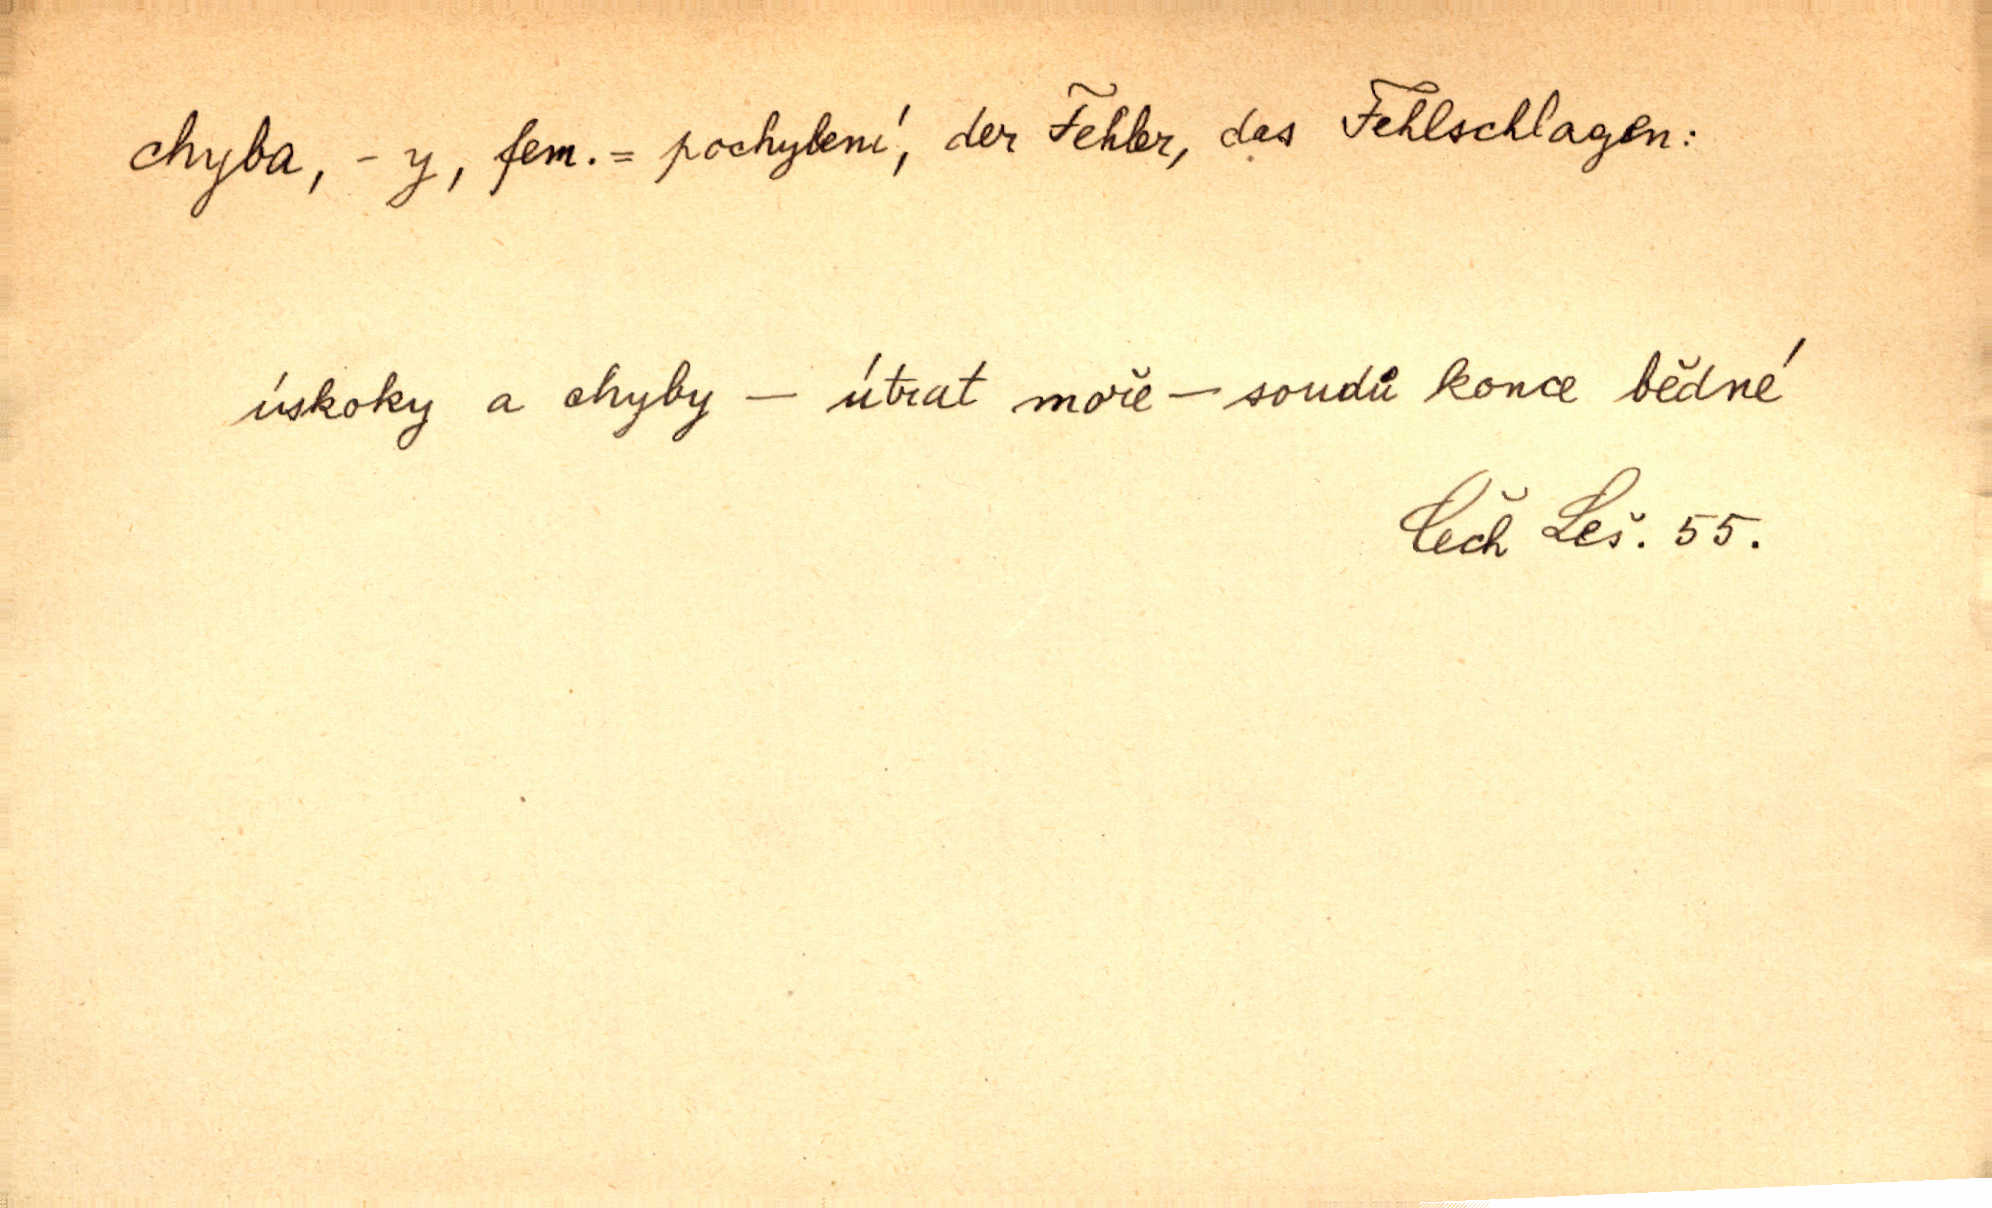 chyba, - y, fem. = pochybení, der Fehler, das Fehlschlagen:
úskoky a chyby — útrat moře — soudů konce bědné
Čech Leš. 55.